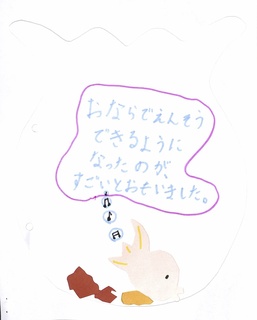 おならでえんそう
できるように
なったのが、
すごいとおもいました。